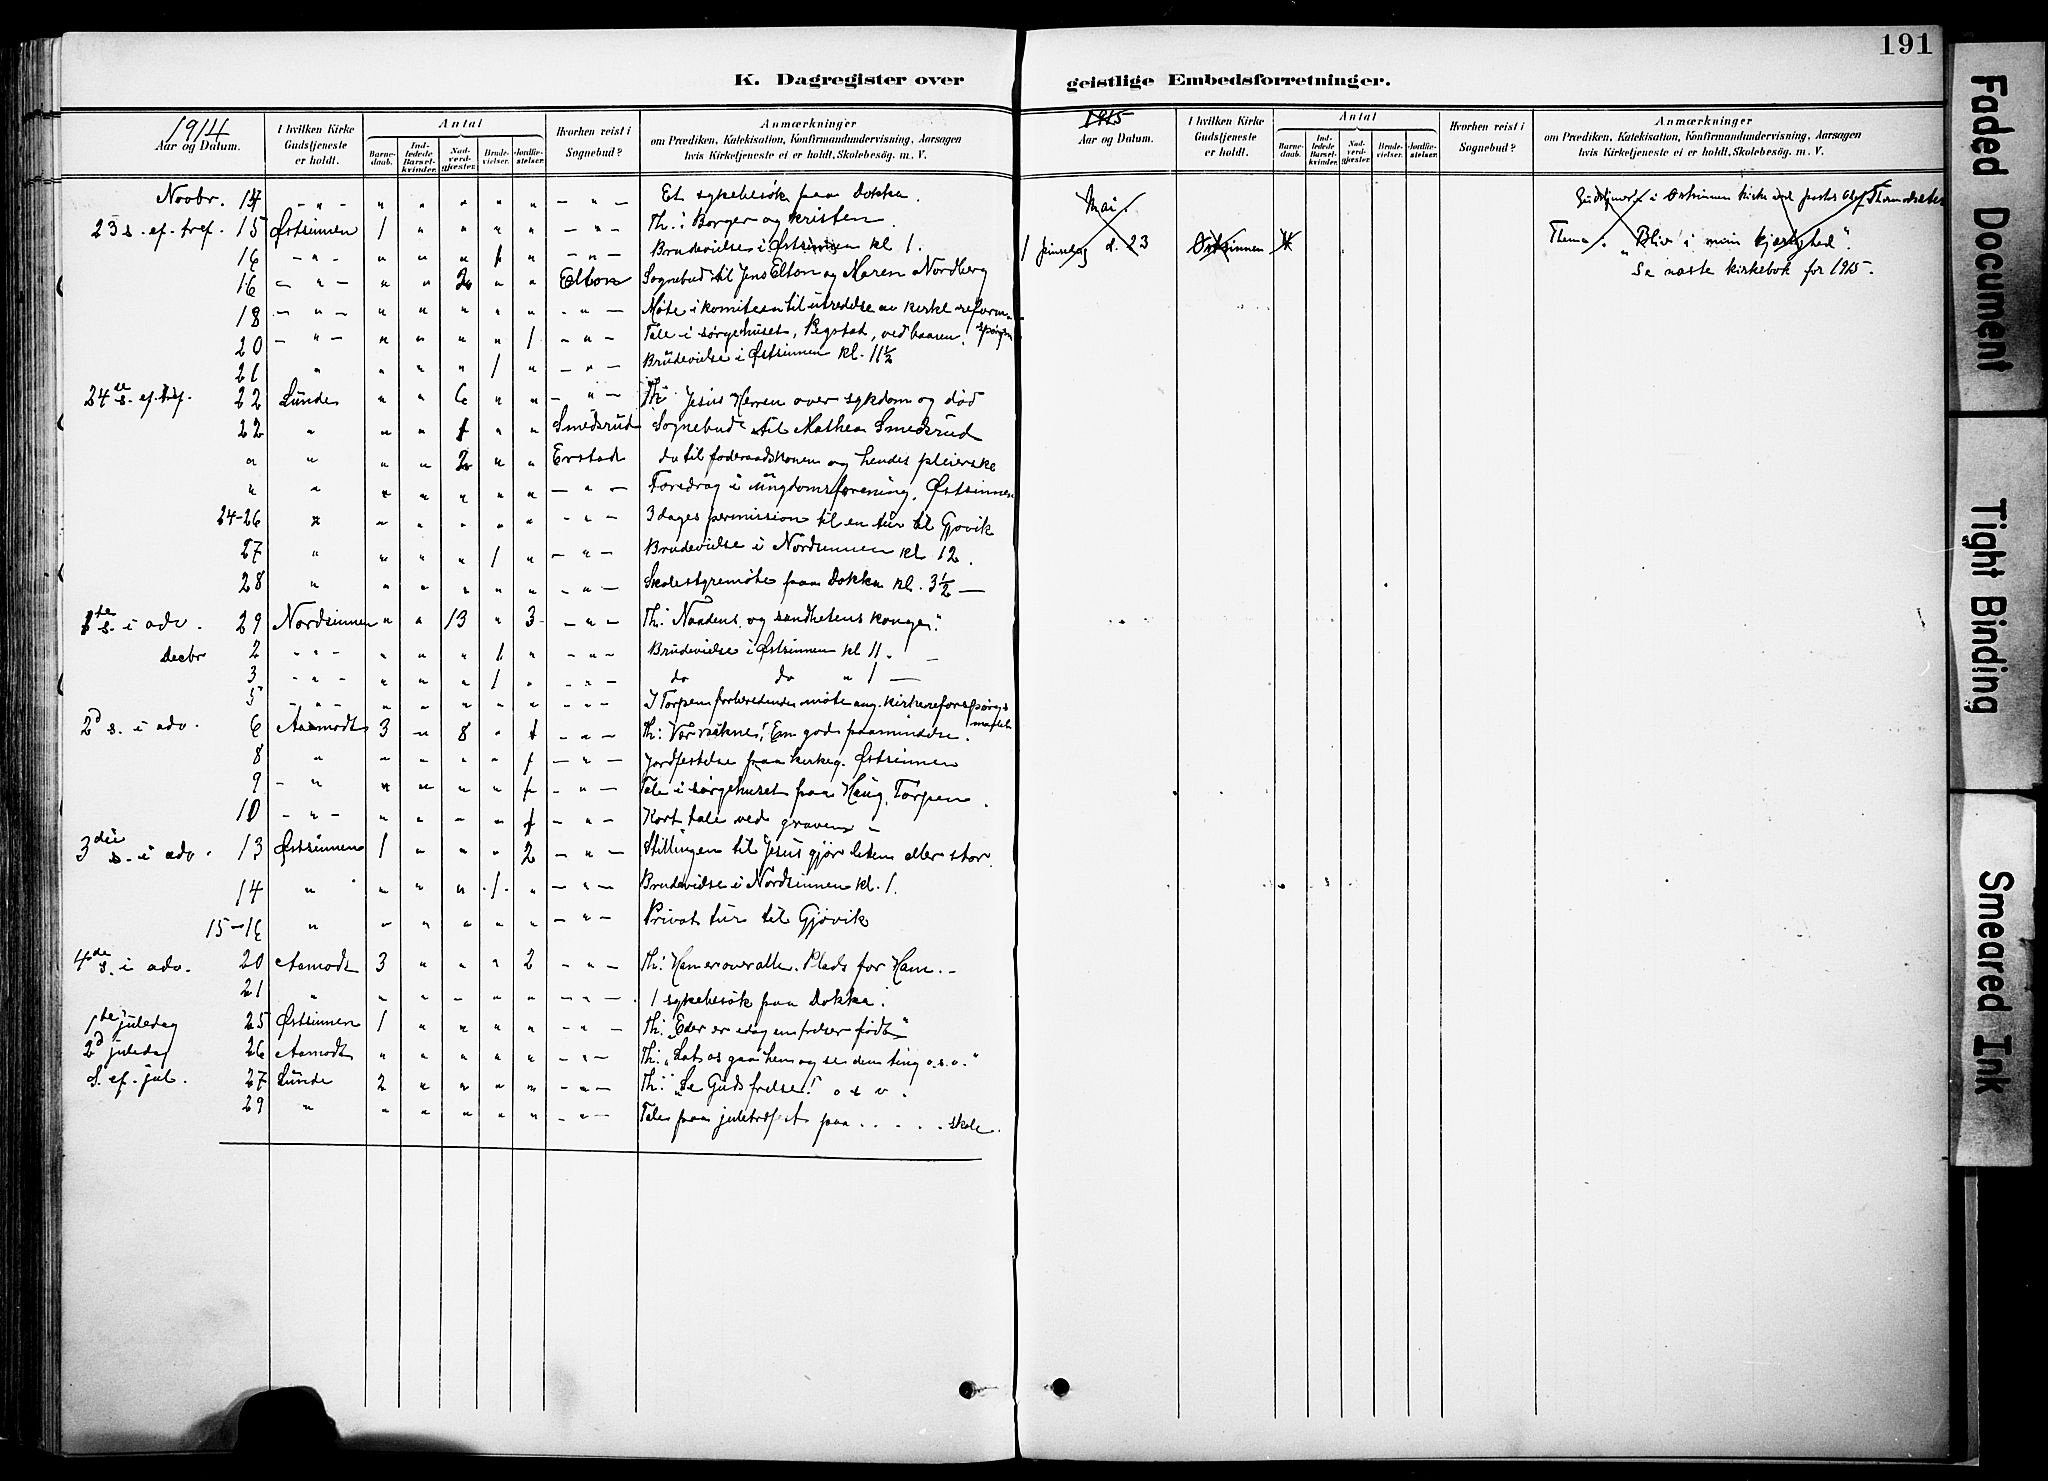 191
K. Dagregister over geistlige Embedsforretninger.
1914
Aar og Datum.
I hvilken Kirke Gudstjeneste er holdt.
Antal
Barnedaab.
Indledede Barselkvinder.
Nadverdgjester.
Brudevielser.
Jordfæstelser.
Hvorhen reist i Sognebud?
Anmærkninger
om Prædiken, Katekisation, Konfirmandundervisning, Aarsagen
hvis Kirketjeneste ei er holdt, Skolebesög. m. V.
Novbr. 14 - " - " " " " " - " - Et sykebesøk paa Dokka.
23 s. ef. tref. 15 Østsinnen 1 " " " " - " - Th: Borger og kristen.
16 - " - " " " 1 " - " - Brudevielse i Østsinnen kl 1.
16 - " - " " 2 " " Elton Sognebud til Jens Elton og Maren Nordberg
18 - " - " " " " " - " - Møte i komiteen til utredelse av kirkl. reform-
spørgsm
20 - " - " " " " 1 - " - Tale i sørgehuset, Bygstad, ved baaren.
21 " " " " 1 " - " - Brudevielse i Østsinnen kl. 11½
24de s. ef. tref. 22 Lunde " " 6 " " - " - Th: Jesus Herren over sykdom og død
22 " " " 1 " " Smedsrud Sognebud til Mathea Smedsrud
" " " " 2 " " Erstad do til føderaadskonen og hendes pleierske
" " " " " " " - " - Foredrag i ungdomsforening, Østsinnen
24-26 " " " " " " - " - 3 dages permission til en tur til Gjøvik
27 " " " " 1 " - " - Brudevielse i Nordsinnen kl 12.
28 " " " " " " - " - Skolestyremøte paa Dokka kl. 3½ -
1ste s. i adv. 29 Nordsinnen " " 13 " 3 - " - Th: Naadens og sandhetens konge."
Decbr 2 - " - " " " 1 " - " - Brudevielse i Østsinnen kl 11. -
3 - " - " " " 1 " - " - do do " 1 -
5 - " - " " " " " - " - I Torpen forberedende møte ang. kirkereforspørgs
maalet
2d s. i adv. 6 Aamodt 3 " 8 " 1 - " - Th: Vor vækne! En gods paamindelse.
8 " " " " " 1 - " - Jordfestelse paa kirkeg. Østsinnen
9 - " " " " " 1 - " - Tale i sørgehuset paa Haug, Torpen.
10 - " - " " " " 1 - " - Kort tale ved graven -
3die s. i adv. 13 Østsinnen 1 " " " 2 - " - Stillingen til Jesus gjør liten eller stor.
14 " " " " 1 " - " - Brudevielse i Nordsinnen kl. 1.
15-16 " " " " " " - " - Privat tur til Gjøvik
4de s. i adv. 20 Aamodt 3 " " " 2 - " - Th: Ham er over alle. Plads for Ham. -
21 " " " " " " - " - 1 sykebesøk paa Dokka.
1ste juledag 25 Østsinnen 1 " " " " - " - Th: "Eder er idag en frelser født"
2d juledag 26 Aamodt " " " " " - " - Th: "Lat os gaa hen og se den ting o.s.v."
S. ef. jul. 27 Lunde 2 " " " " - " - Th: "Se Guds frelse! o s v.
29 " " " " " " - " - Tale paa juletræfest paa . . . . . skole.
1915
Aar og Datum.
I hvilken Kirke Gudstjeneste er holdt.
Antal
Barnedaab.
Indledede Barselkvinder.
Nadverdgjester.
Brudevielser.
Jordfæstelser.
Hvorhen reist i Sognebud?
Anmærkninger
om Prædiken, Katekisation, Konfirmandundervisning, Aarsagen
hvis Kirketjeneste ei er holdt, Skolebesög. m. V.
Mai. i Østsinnen kirke ved
1 pinsedag d. 23 Østsinnen Thema. "Bliv i min kjærlighed".
Se næste kirkebok for 1915.
Faded Document
Tight Binding
Smeared Ink